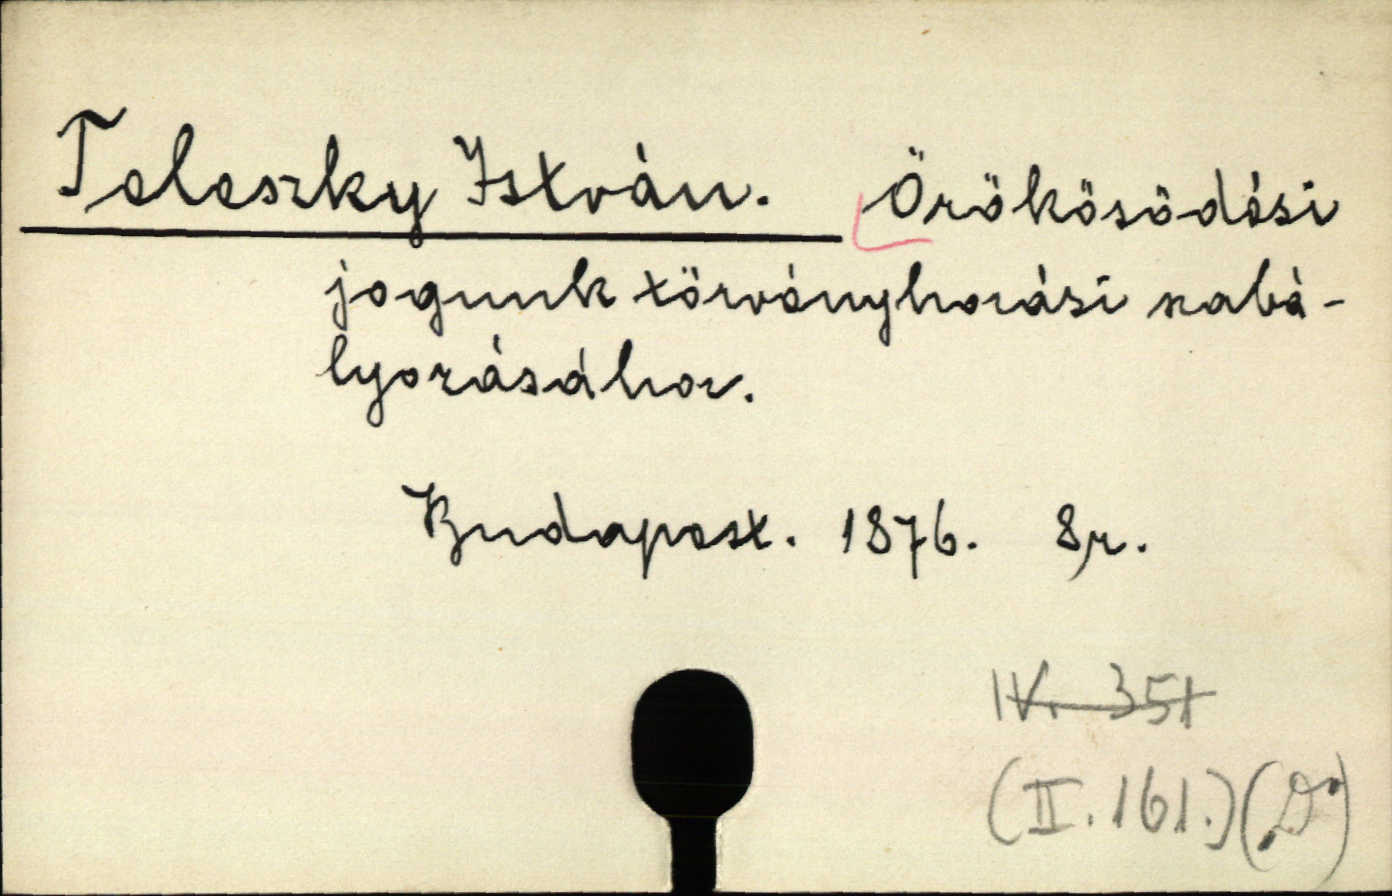 Teleszky István. Örökösödési
jogunk törvényhozási szabá-
lyozásához.
Budapest. 1876. 8r.
IV. 351
(II. 161.) (D)